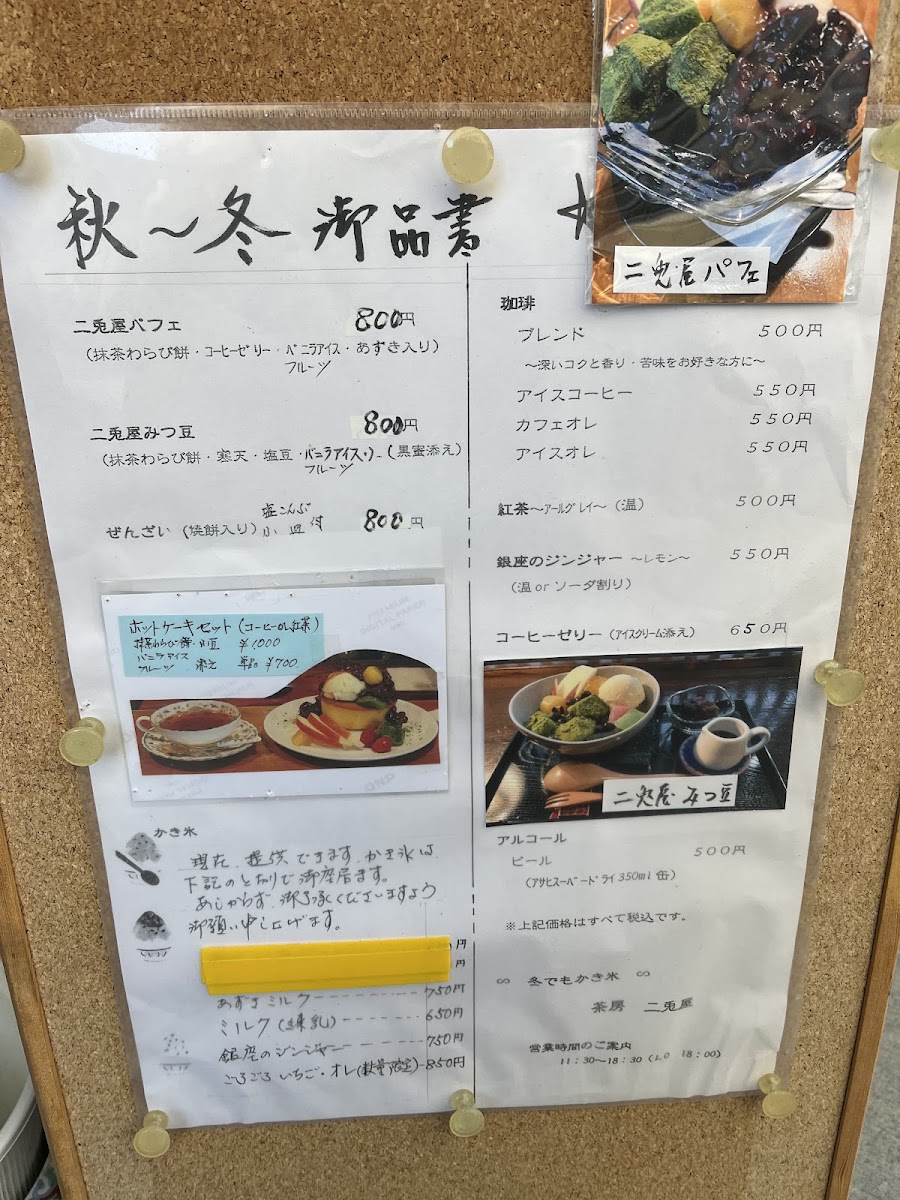 秋〜冬 御品書
二兎屋パフェ 800円
(抹茶わらび餅・コーヒーゼリー・バニラアイス・あずき入り)
フルーツ
二兎屋みつ豆 800円
(抹茶わらび餅・寒天・塩豆・バニラアイス・(黒蜜添え)
フルーツ
ぜんざい (焼餅入り) 塩こんぶ 小皿付 800円
ホットケーキセット (コーヒーor紅茶)
抹茶わらび餅・小豆 ¥1,000
バニラアイス
フルーツ 添え 単品 ¥700
かき氷
現在、提供できます かき氷は、
下記のとおりで御座居ます。
あしからず 御了承くださいますよう
御願い申し上げます。
円
円
あずきミルク 750円
ミルク(練乳) 650円
銀座のジンジャー 750円
ごろごろ いちご・オレ(数量限定) 850円
二兎屋パフェ
珈琲
ブレンド 500円
〜深いコクと香り・苦味をお好きな方に〜
アイスコーヒー 550円
カフェオレ 550円
アイスオレ 550円
紅茶〜アールグレイ〜 (温) 500円
銀座のジンジャー 〜レモン〜 550円
(温orソーダ割り)
コーヒーゼリー (アイスクリーム添え) 650円
二兎屋 みつ豆
アルコール
ビール 500円
(アサヒスーパードライ350ml缶)
※上記価格はすべて税込です。
∽ 冬でもかき氷 ∽
茶房 二兎屋
営業時間のご案内
11:30〜18:30 (Lo 18:00)